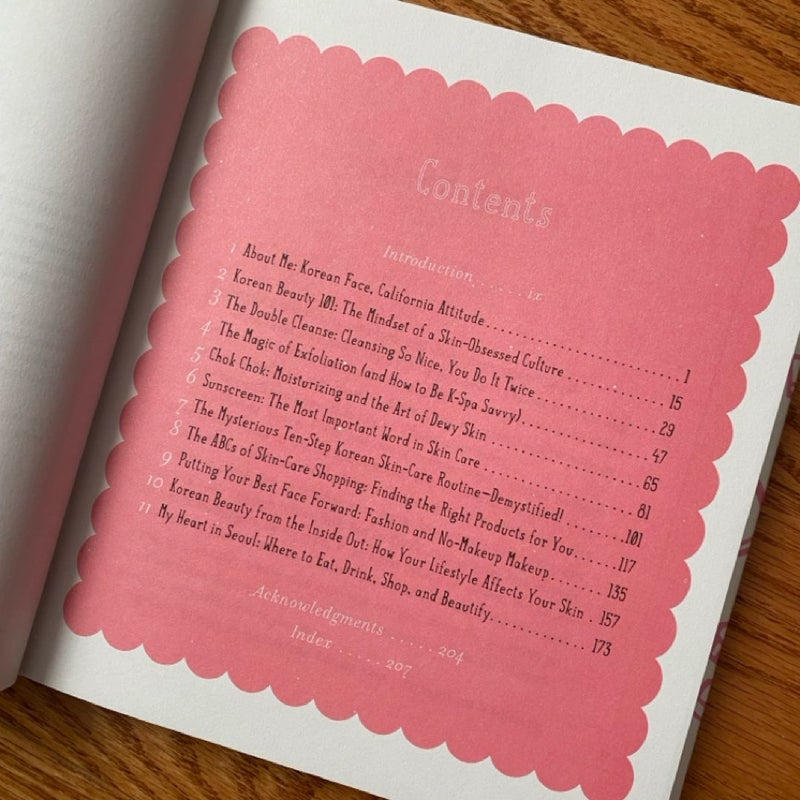 Contents
Introduction ...... ix
1 About Me: Korean Face, California Attitude ........................ 1
2 Korean Beauty 101: The Mindset of a Skin-Obsessed Culture ............ 15
3 The Double Cleanse: Cleansing So Nice, You Do It Twice ............... 29
4 The Magic of Exfoliation (and How to Be K-Spa Savvy) .............. 47
5 Chok Chok: Moisturizing and the Art of Dewy Skin .................. 65
6 Sunscreen: The Most Important Word in Skin Care .................. 81
7 The Mysterious Ten-Step Korean Skin-Care Routine—Demystified! ....... 101
8 The ABCs of Skin-Care Shopping: Finding the Right Products for You ...... 117
9 Putting Your Best Face Forward: Fashion and No-Makeup Makeup ....... 135
10 Korean Beauty from the Inside Out: How Your Lifestyle Affects Your Skin .. 157
11 My Heart in Seoul: Where to Eat, Drink, Shop, and Beautify ............ 173
Acknowledgments ...... 204
Index ...... 207